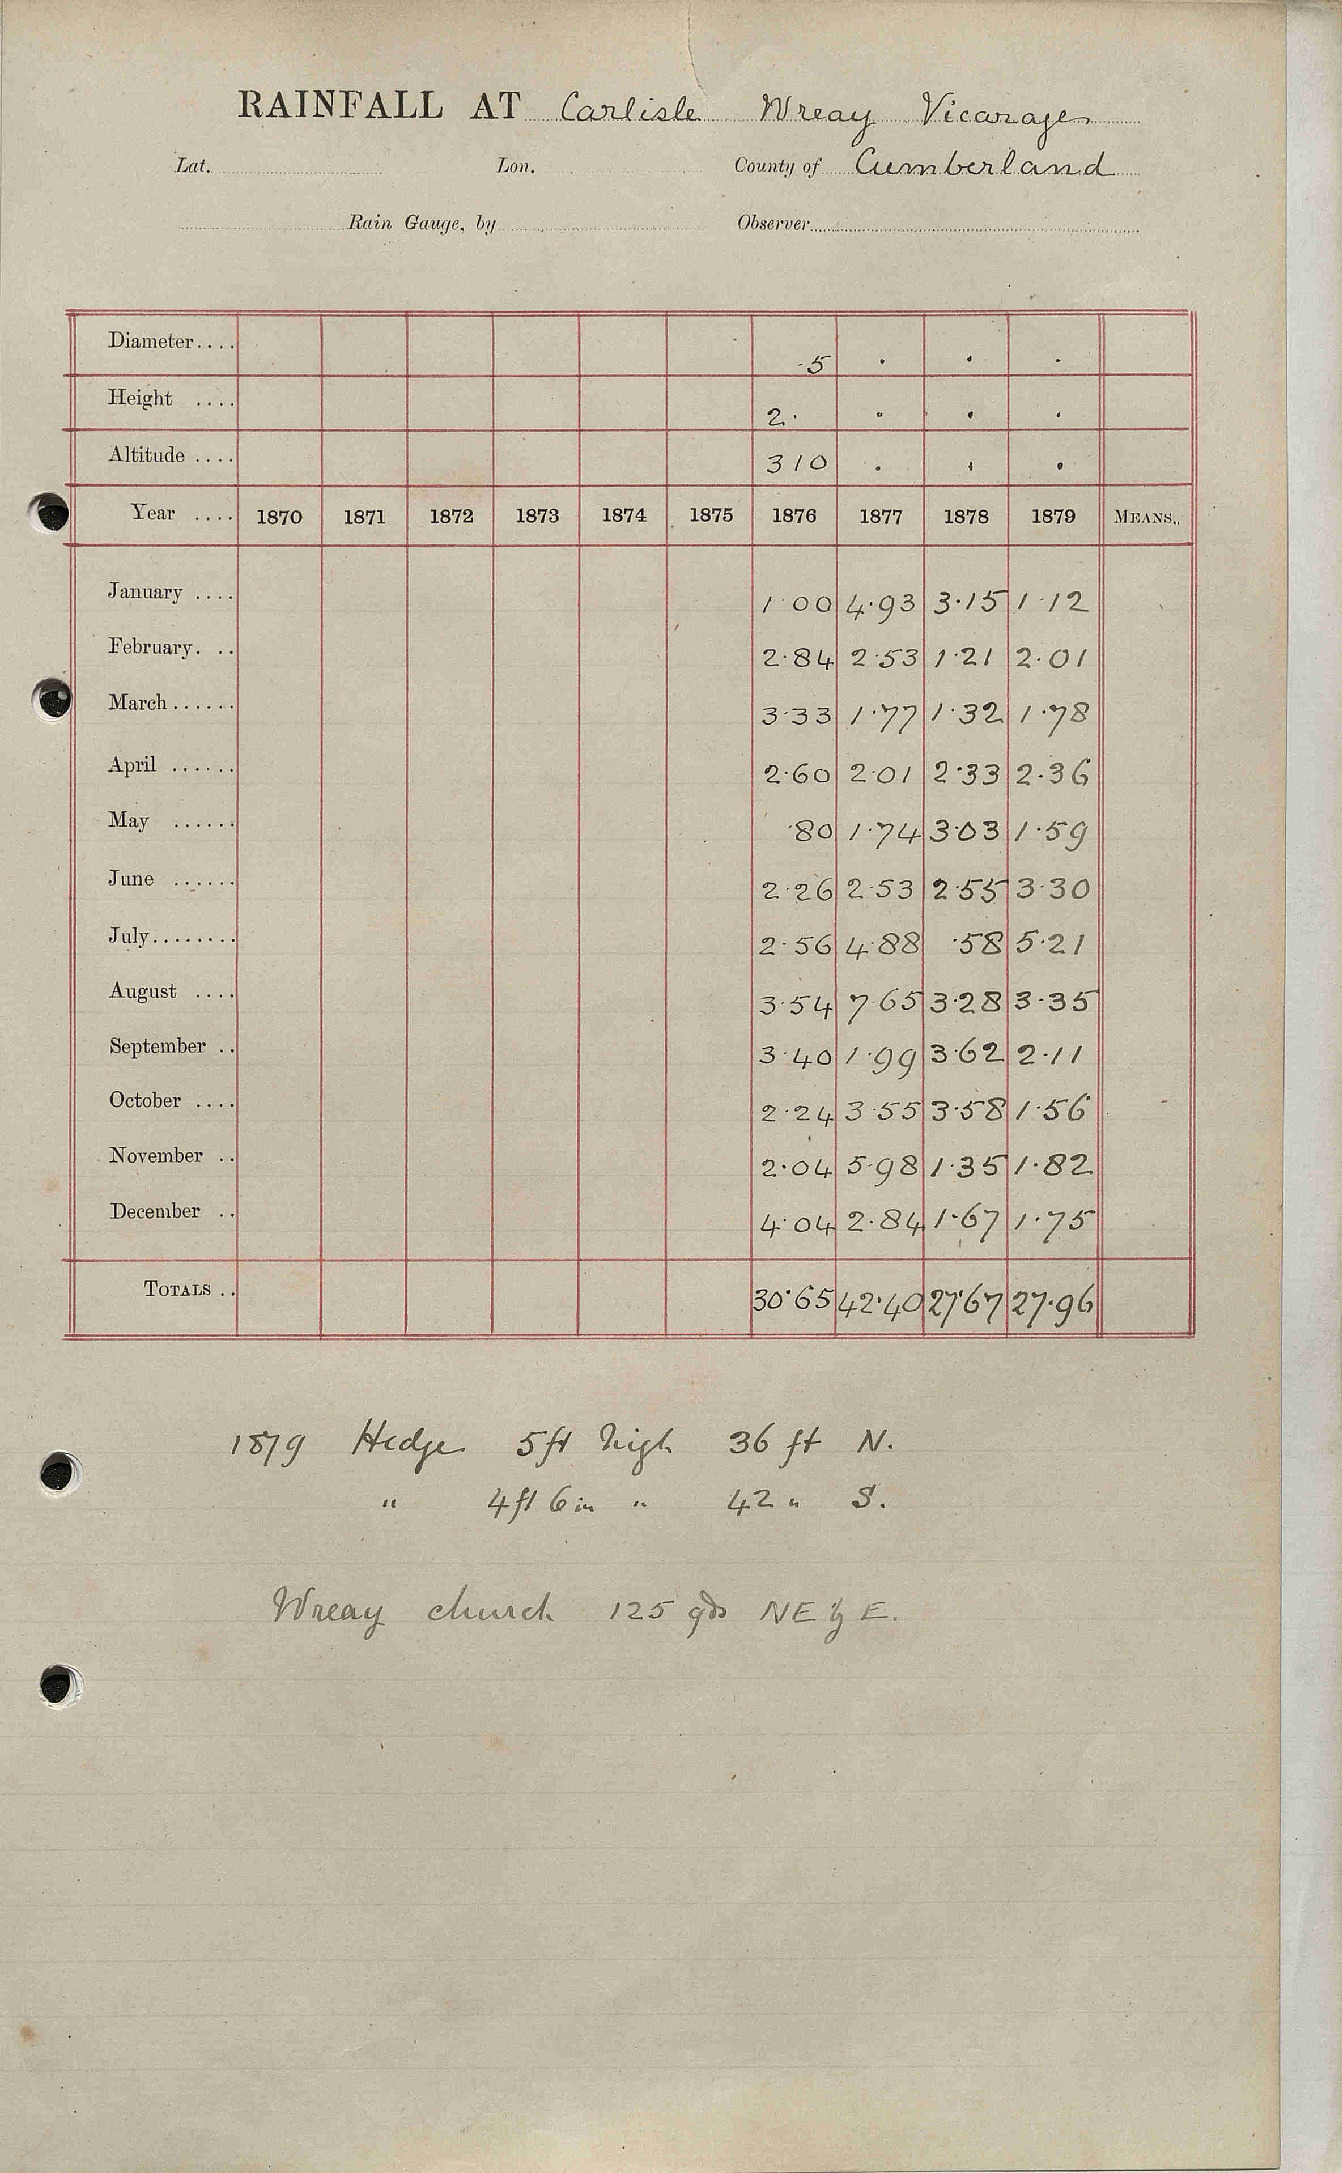 RAINFALL AT Carlisle Wreay Vicarage
Lat. Lon. County of Cumberland
Rain Gauge, by Observer
Diameter.... 5 . . .
Height .... 2. . . .
Altitude .... 310 . . .
Year .... 1870 1871 1872 1873 1874 1875 1876 1877 1878 1879 MEANS..
January .... 1·00 4·93 3·15 1·12
February. .. 2·84 2·53 1·21 2·01
March...... 3·33 1·77 1·32 1·78
April ...... 2·60 2·01 2·33 2·36
May ...... ·80 1·74 3·03 1·59
June ...... 2·26 2·53 2·55 3·30
July........ 2·56 4·88 ·58 5·21
August .... 3·54 7·65 3·28 3·35
September .. 3·40 1·99 3·62 2·11
October .... 2·24 3·55 3·58 1·56
November .. 2·04 5·98 1·35 1·82
December .. 4·04 2·84 1·67 1·75
TOTALS .. 30·65 42·40 27·67 27·96
1879 Hedge 5ft high 36 ft N.
" 4ft 6in " 42 " S.
Wreay church 125 yds NE by E.